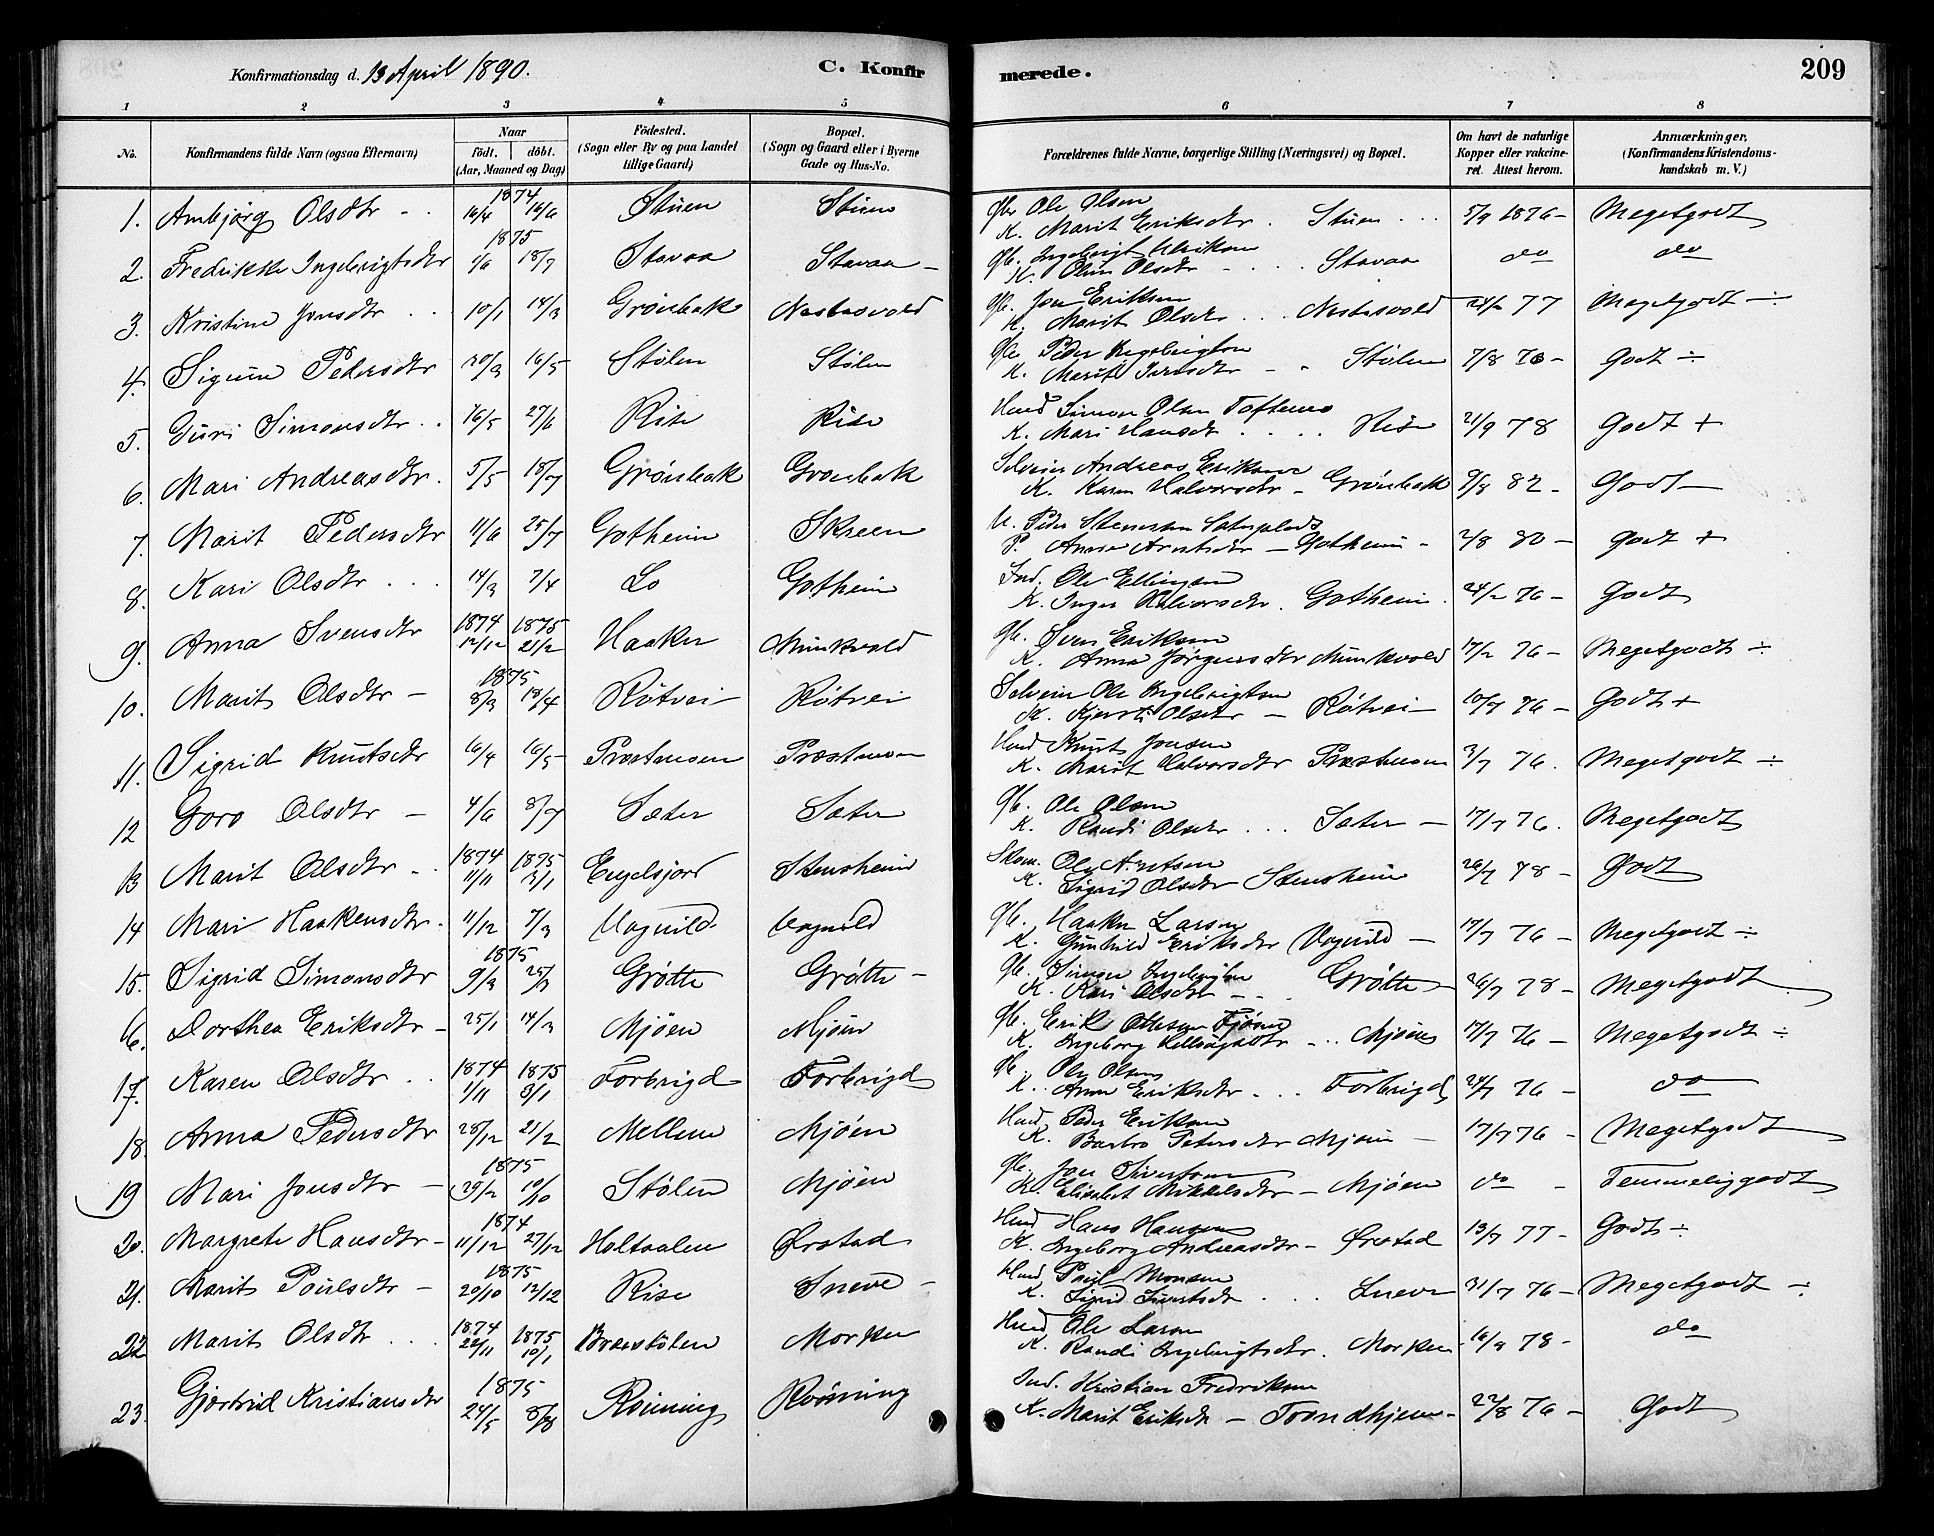 Konfirmationsdag d. 13 April 1890. C. Konfirmerede. 209
1 2 3 4 5 6 7 8
No. Konfirmandens fulde Navn (ogsaa Efternavn) Naar födt. döbt. (Aar, Maaned og Dag) Födested. (Sogn eller By og paa Landet tillige Gaard) Bopæl. (Sogn og Gaard eller i Byerne Gade og Hus-No. Forældrenes fulde Navne, borgerlige Stilling (Næringsvei) og Bopæl. Om havt de naturlige Kopper eller vakcineret. Attest herom. Anmærkninger, (Konfirmandens Kristendomskundskab m. V.)
1874
1. Ambjörg Olsdtr 16/4 16/6 Stuen Stuen Gbr Ole Olsen K. Marit Eriksdtr. Stuen 5/9 1876 - Megetgodt
1875
2. Fredrikke Ingebrigtsdtr 1/6 18/7 Stavaa Stavaa - Gb. Ingebrigt K. Olsdtr Stavaa do do
3. Kristine Jonsdtr 10/1 14/3 Grönbak Nestavold Gb. Jon Eriksen K. Marit Olsdtr Nestavold 77 Megetgodt ÷
4. Sigrun Pedersdtr 20/3 16/5 Stølen Stølen Peder Ingebrigtsen K. Marit Stølen 7/8 76 - Godt ÷
5. Guri Simonsdtr 16/5 27/6 Rise Rise Hmd Simon Olsen Toftemo K. Mari Hansdtr Rise 21/9 78 Godt +
6. Mari Andreasdtr. 5/5 18/7 Grönbak Grönbak Selveier Andreas Eriksen K. Karen Halvorsdtr - Grönbak 9/8 82 - Godt -
7. Marit Pedersdtr 11/6 25/7 Gotheim Skreen Peder Stensen P. Anne Arntsdtr - Gotheim - 2/8 80 - godt +
8. Kari Olsdtr 14/3 7/4 Lo Gotheim Ind. Ole Ellingsen K. Inger Halvorsdtr. Gotheim 24/2 76 - Godt
9. Anna Svensdtr 1874 12/12 1875 21/2 Haaker Munkvold Gb. Sven Eriksen K. Anna Jörgensdtr Munkvold 17/2 76 - Megetgodt ÷
1875
10. Marit Olsdtr - 8/3 18/4 Rötvei Rötvei Selveier Ole Ingebrigtsen K. Kjersti Olsdtr - Rötvei 10/7 76 - Godt +
11. Sigrid Knutsdtr 16/4 16/5 Præstmoen Præstmoen Hmd Knut Jonsen K. Marit Halvorsdtr Præstmoen 3/7 76. Megetgodt ÷
12 Goro Olsdtr - 4/6 8/7 Sæter Sæter Gb. Ole Olsen K. Randi Olsdtr Sæter - 17/7 76. Megetgodt
13 Marit Olsdtr 1874 11/11 1875 3/1 Engelsjord Stensheim Skom. Ole Arntsen K. Sigrid Olsdtr Stensheim 78 - Godt
14 Mari Haakensdtr. 11/12 7/3 Vognild Vognild Gb. Haaken Larsen K. Gunhild Eriksdtr Vognild - 17/7 76 - Megetgodt ÷
1875
15. Sigrid Simonsdtr 9/3 25/3 Grøtte Grøtte - Gb. Simon Ingebrigtsen K. Kari Olsdtr - Grøtte 26/7 78 - Megetgodt
16. Dorthea Eriksdtr - 25/1 14/3 Mjöen Mjöen Gb. Erik Ottesen K. Ingeborg Mjöen 17/7 76 - Megetgodt ÷
17. Karen Olsdtr 1874 1/11 1875 3/1 Forbrigd Forbrigd Gb. Ole Olsen K. Anne Eriksdtr Forbrigd 24/7 76 - do
18. Anna Pedersdtr 28/12 21/2 Mellem Mjöen Hmd Peder Eriksen K. Barbro Petersdtr Mjöen - 17/7 76 - Megetgodt
1875
19 Mari Jonsdtr - 29/2 10/10 Stölen Mjöen Gb. Jon Sivertsen K. Elisabet Mikkelsdtr - Mjöen do - Temmeliggodt
1874
20. Margrete Hansdtr - 11/12 27/12 Holtaalen Ørstad Hmd Hans Hansen K. Ingeborg Andreasdtr - Ørstad 13/7 77 - Godt ÷
1875
21. Marit Poulsdtr - 20/10 12/12 Rise Sneve - Hmd Poul Monsen K. Sigrid Sivertsdtr Sneve 31/7 76 - Megetgodt ÷
22 Marit Olsdtr 1874 22/11 1875 10/1 Braestölen Morken Hmd Ole Larsen K. Randi Ingebrigtsdtr. Morken - 16/9 78 - do
1875
23. Gjertrud Kristiansdtr 24/5 8/8 Rönning Rönning Ind. Kristian Fredriksen K. Marit Eriksdtr - Trondhjem - 22/8 76 - Godt